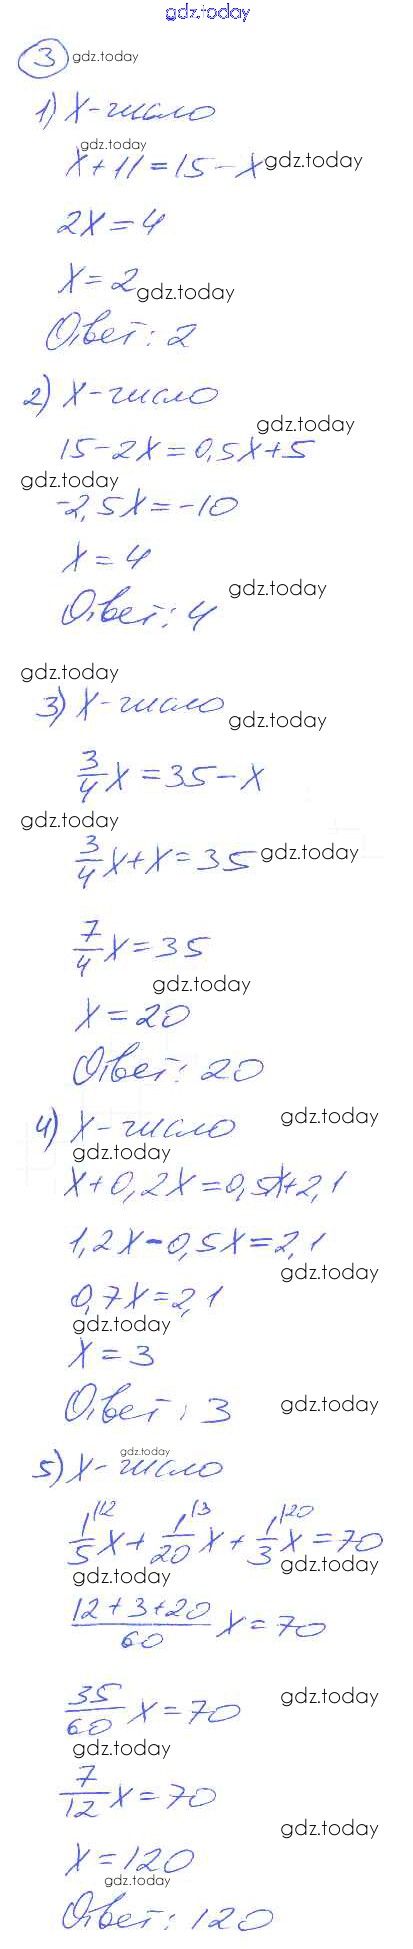 gdz.today
3 gdz.today
1) x-число
gdz.today
x+11=15-x gdz.today
2x=4
x=2
gdz.today
Ответ: 2
2) x-число
gdz.today
15-2x=0,5x+5
gdz.today
-2,5x=-10
x=4
gdz.today
Ответ: 4
gdz.today
3) x-число
gdz.today
3/4x=35-x
gdz.today
3/4x+x=35 gdz.today
7/4x=35
gdz.today
x=20
Ответ: 20
gdz.today
4) x-число
gdz.today
x+0,2x=0,5x+2,1
1,2x-0,5x=2,1
gdz.today
0,7x=2,1
gdz.today
x=3
Ответ: 3 gdz.today
gdz.today
5) x-число
1/5^(12 x+1/20^(3 x+1/3^(20 x=70
gdz.today
gdz.today
(12+3+20)/60 x=70
35/60 x=70 gdz.today
gdz.today
7/12 x=70
gdz.today
x=120
gdz.today
Ответ: 120